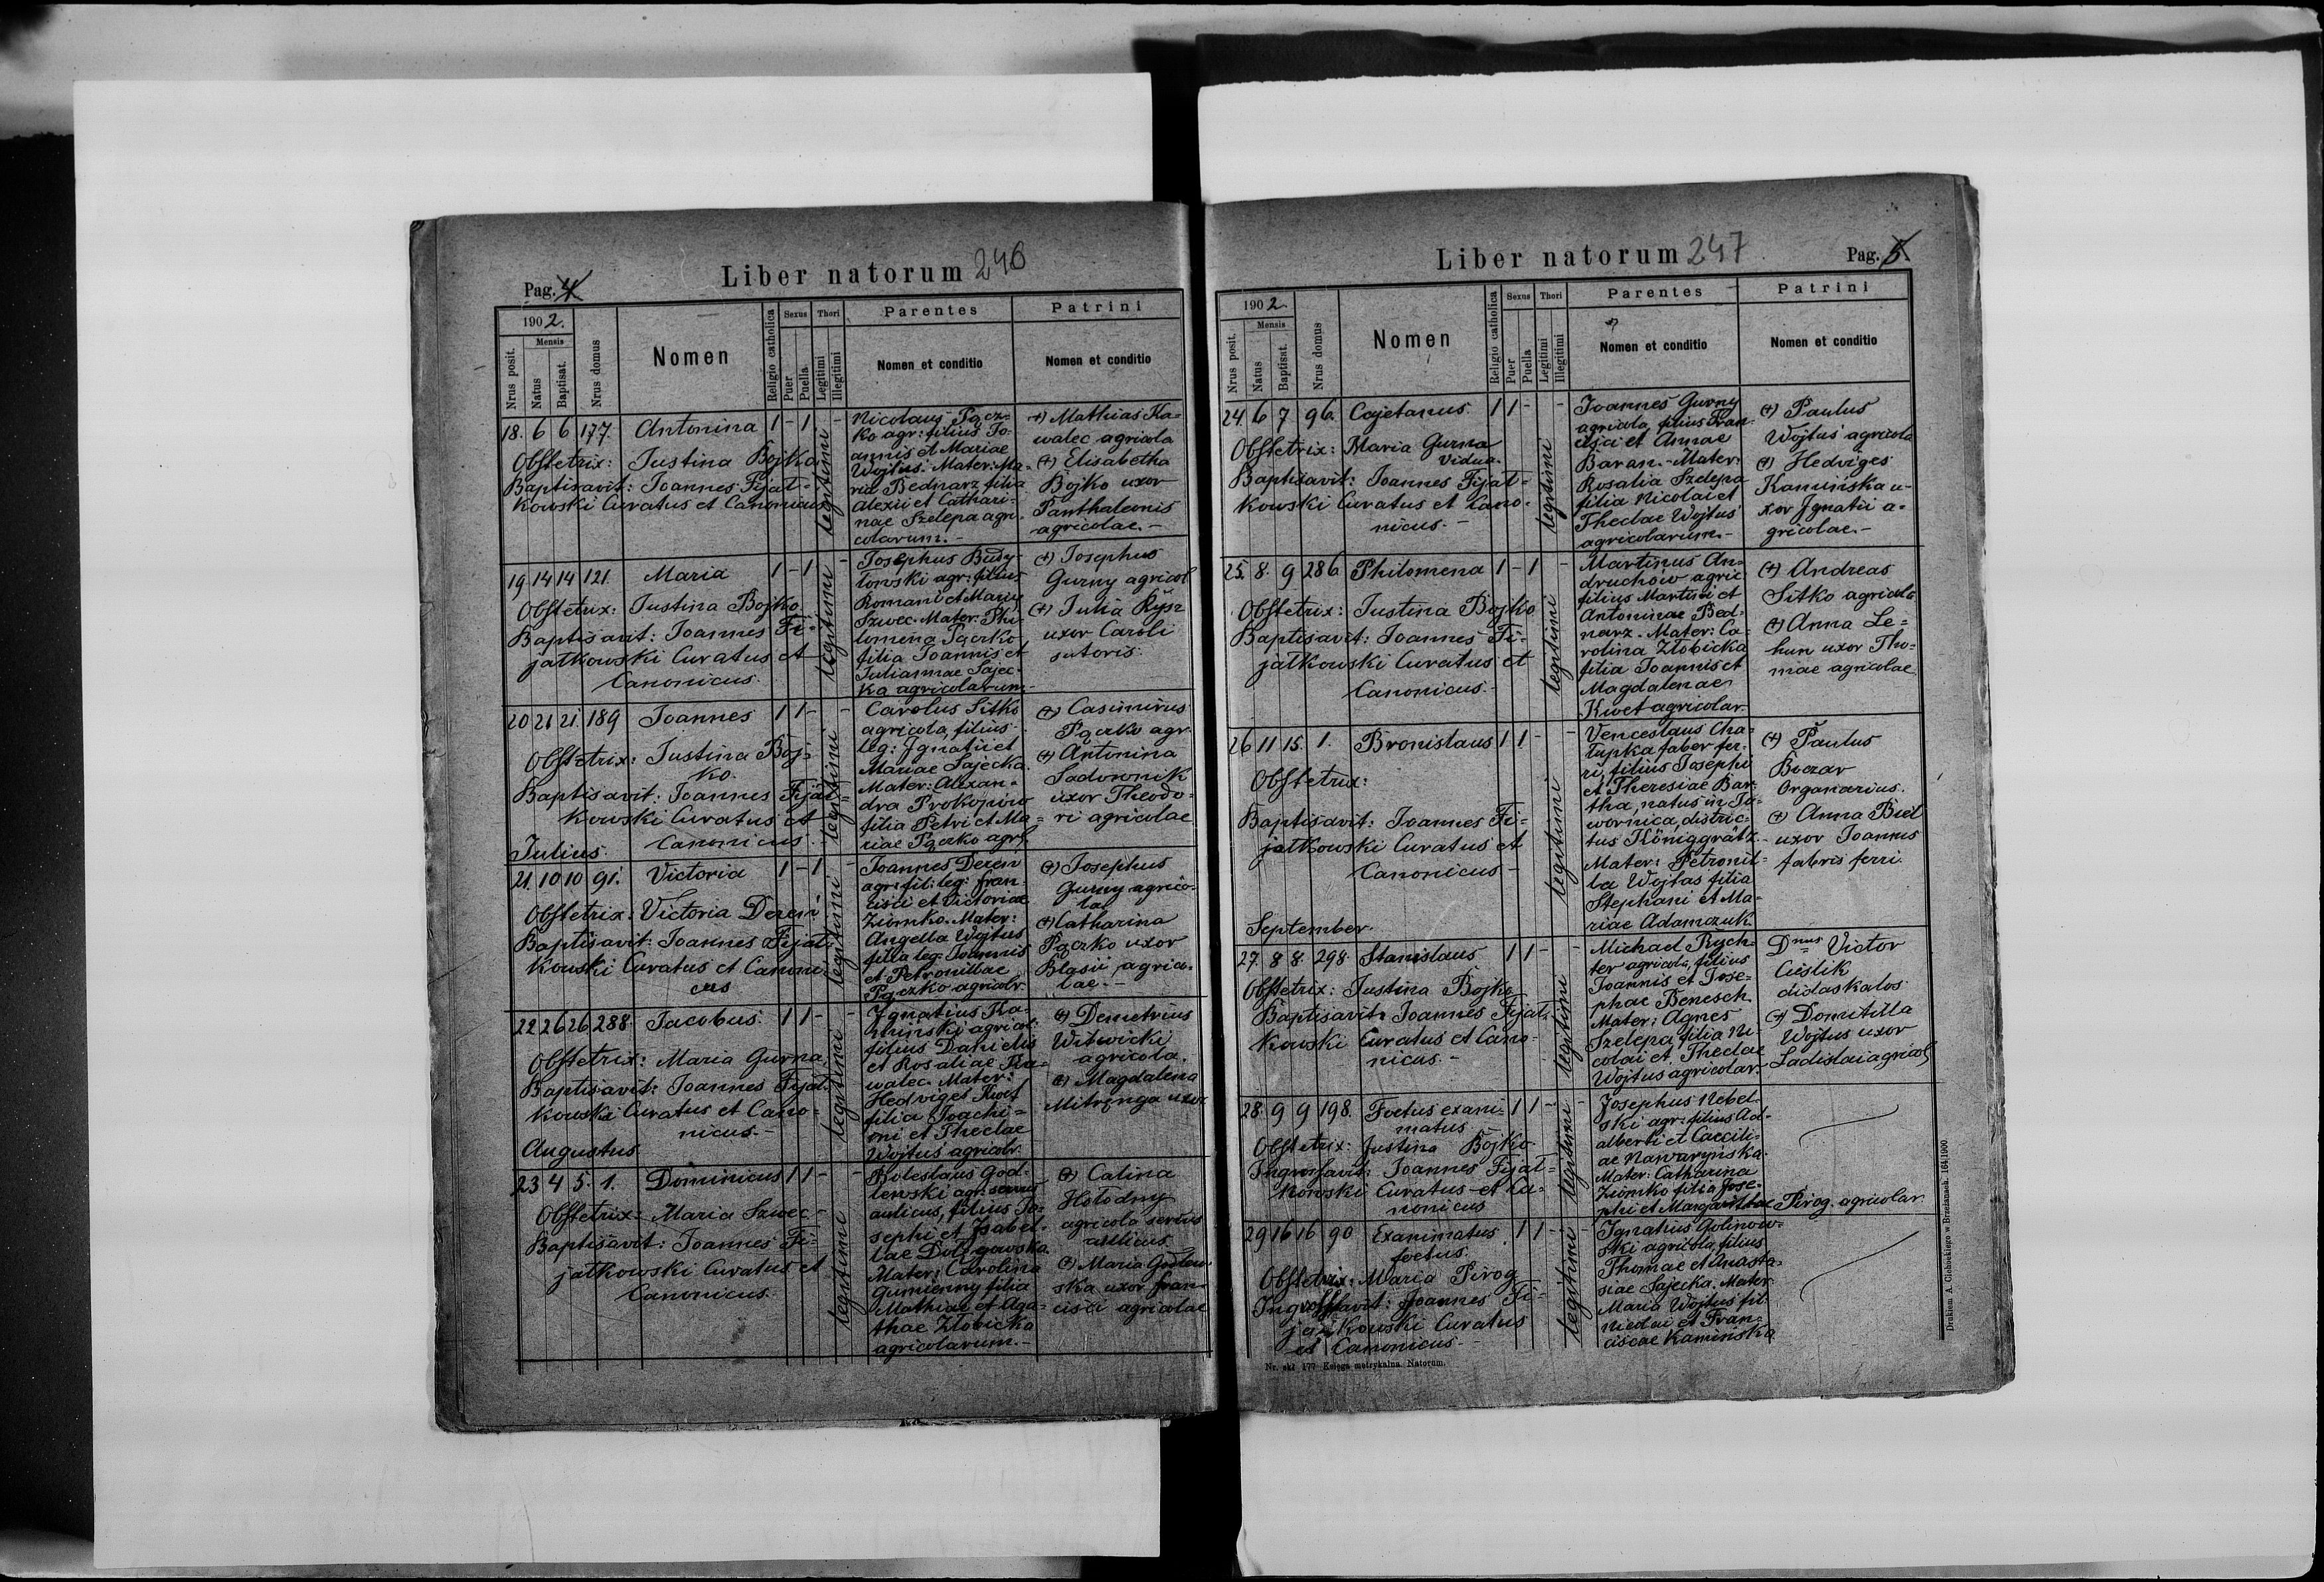 Pag. 4
Liber natorum 246
1902.
Mensis
Nrus posit.
Natus
Baptisat.
Nrus domus
Nomen
Religio catholica
Sexus
Puer
Puella
Thori
Legitimi
Illegitimi
Parentes
Nomen et conditio
Patrini
Nomen et conditio
18. 6 6 177. Antonina 1 - 1 -
Obstetrix: Justina Bojko
Baptisavit: Joannes Fijał=
kowski Curatus et Canonicus
legitimi
Nicolaus Pącz=
ko agr: filius Jo-
annis et Mariae
Wojtuś. Mater: Ma-
ria Bednarz filia
Alexii et Cathari-
nae Szelepa agri-
colarum.-
(+) Mathias Ka=
walec agricola
(+) Elisabetha
Bojko uxor
Panthaleonis
agricolae.-
19 14 14 121. Maria 1 - 1 -
Obstetrix: Justina Bojko
Baptisavit: Joannes Fi=
jałkowski Curatus et
Canonicus.
legitimi
Josephus Budy-
łowski agr: filius
Romani et Mariae
Szwec. Mater: Phi-
lomena Pączko
filia Joannis et
Juliannae Sajec-
ka agricolarum-
(+) Josephus
Gurny agricol
(+) Julia Rysz
uxor Caroli
sutoris.
20 21 21. 189 Joannes 1 1 - -
Obstetrix: Justina Boj-
ko.
Baptisavit: Joannes Fijał=
kowski Curatus et
Canonicus.-
legitimi
Carolus Sitko
agricola, filius
leg: Ignatii et
Mariae Sajecka.
Mater: Alexan-
dra Prokopów
filia Petri et Ma-
riae Pączko agr.
(+) Casimirus
Pączko agr.
(+) Antonina
Sadownik
uxor Theodo-
ri agricolae
Julius.
21. 10 10 91. Victoria 1 - 1 -
Obstetrix: Victoria Dereń
Baptisavit: Joannes Fijał-
kowski Curatus et Canoni-
cus
legitimi
Joannes Dereń
agr: fil: leg: Fran-
cisci et Victoriae
Ziomko. Mater:
Angella Wojtuś
filia leg: Joannis
et Petronillae
Pączko agricolr.
(+) Josephus
Gurny agrico-
la
(+) Catharina
Pączko uxor
Blasii agrico-
lae.-
22 26 26 288. Jacobus. 1 1 - -
Obstetrix: Maria Gurna
Baptisavit: Joannes Fijał-
kowski Curatus et Cano=
nicus.-
legitimi
Ignatius Ka-
miński agricol:
filius Danielis
et Rosaliae Ka-
walec. Mater:
Hedviges Kwet
filia Joachi=
mi et Theclae
Wojtuś agricolr.
(+) Demetrius
Witwicki
agricola.
(+) Magdalena
Mitręnga uxor
Augustus
23 4 5. 1. Dominicus 1 1 - -
Obstetrix: Maria Szwec-
Baptisavit: Joannes Fi=
jałkowski Curatus et
Canonicus.
legitimi
Boleslaus God-
lewski agr: servus
aulicus, filius Jo-
sephi et Isabel-
lae Dołęgowska
Mater: Carolina
Gumienny filia
Mathiae et Aga-
thae Złobicka
agricolarum.-
(+) Calina
Hołodny
agricola servus
aulicus
(+) Maria Godlew-
ska uxor Fran-
cisci agricolae
Liber natorum 247
Pag. 5
1902.
Mensis
Nrus posit.
Natus
Baptisat.
Nrus domus
Nomen
Religio catholica
Sexus
Puer
Puella
Thori
Legitimi
Illegitimi
Parentes
Nomen et conditio
Patrini
Nomen et conditio
24. 6 7 96. Cajetanus. 1 1 - -
Obstetrix: Maria Gurna
vidua.
Baptisavit: Joannes Fijał=
kowski Curatus et Cano-
nicus.-
legitimi
Joannes Gurny
agricola, filius Fran-
cisci et Annae
Baran.- Mater:
Rosalia Szelepa
filia Nicolai et
Theclae Wojtuś
agricolarum.-
(+) Paulus
Wojtuś agricola
(+) Hedviges
Kamińska u-
xor Ignatii a=
gricolae.-
25. 8. 9 286 Philomena 1 - 1 -
Obstetrix: Justina Bojko
Baptisavit: Joannes Fi=
jałkowski Curatus et
Canonicus.-
legitimi
Martinus An-
druchów agric:
filius Martini et
Antoninae Bed-
narz. Mater: Ca-
rolina Złobicka
filia Joannis et
Magdalenae
Kwet agricolar.
(+) Andreas
Sitko agricola
(+) Anna Le=
hun uxor Tho=
mae agricolae
26 11 15. 1. Bronislaus 1 1 - -
Obstetrix:
Baptisavit: Joannes Fi=
jałkowski Curatus et
Canonicus-
legitimi
Venceslaus Cha-
łupka faber fer-
ri, filius Josephi
et Theresiae Bar-
tha, natus in Ja-
wornica, distric-
tus Königgrätz.
Mater: Petronil-
la Wojtas filia
Stephani et Ma-
riae Adamczuk.
(+) Paulus
Buczar
Organarius.
(+) Anna Biel
uxor Joannis
fabris ferri.
September.
27. 8 8. 298. Stanislaus 1 1 - -
Obstetrix: Justina Bojko
Baptisavit: Joannes Fijał-
kowski Curatus et Cano-
nicus.-
legitimi
Michael Rych-
ter agricola, filius
Joannis et Jose=
phae Benesch.
Mater: Agnes
Szelepa, filia Ni-
colai et Theclae
Wojtus agricolar.-
Dnus Victor
Cieślik
didaskalos
(+) Domitilla
Wojtus uxor
Ladislai agricol
28. 9 9 198. Foetus exani- 1 1 - -
matus
Obstetrix: Justina Bojko
Ingrossavit: Joannes Fijał=
kowski Curatus et Ca-
nonicus
legitimi
Josephus Nebel-
ski agr: filius Ad-
alberti et Caecili-
ae Nawaryńska.
Mater: Catharina
Ziomko filia Jose-
phi et Margarithae Pirog. agricolar.
29 16 16 90 Exanimatus 1 1 - -
foetus.
Obstetrix: Maria Pirog
Ingrossavit: Joannes Fi=
jałkowski Curatus
et Canonicus-
legitimi
Ignatius Golinow-
ski agricola, filius
Thomae et Anasta-
siae Sajecka. Mater
Maria Wojtus fil:
Nicolai et Fran-
ciscae Kamińska
Nr. skł 177 Księga metrykalna. Natorum.
Drukiem A. Ciebockiego w Brzeżanach. 164/1900